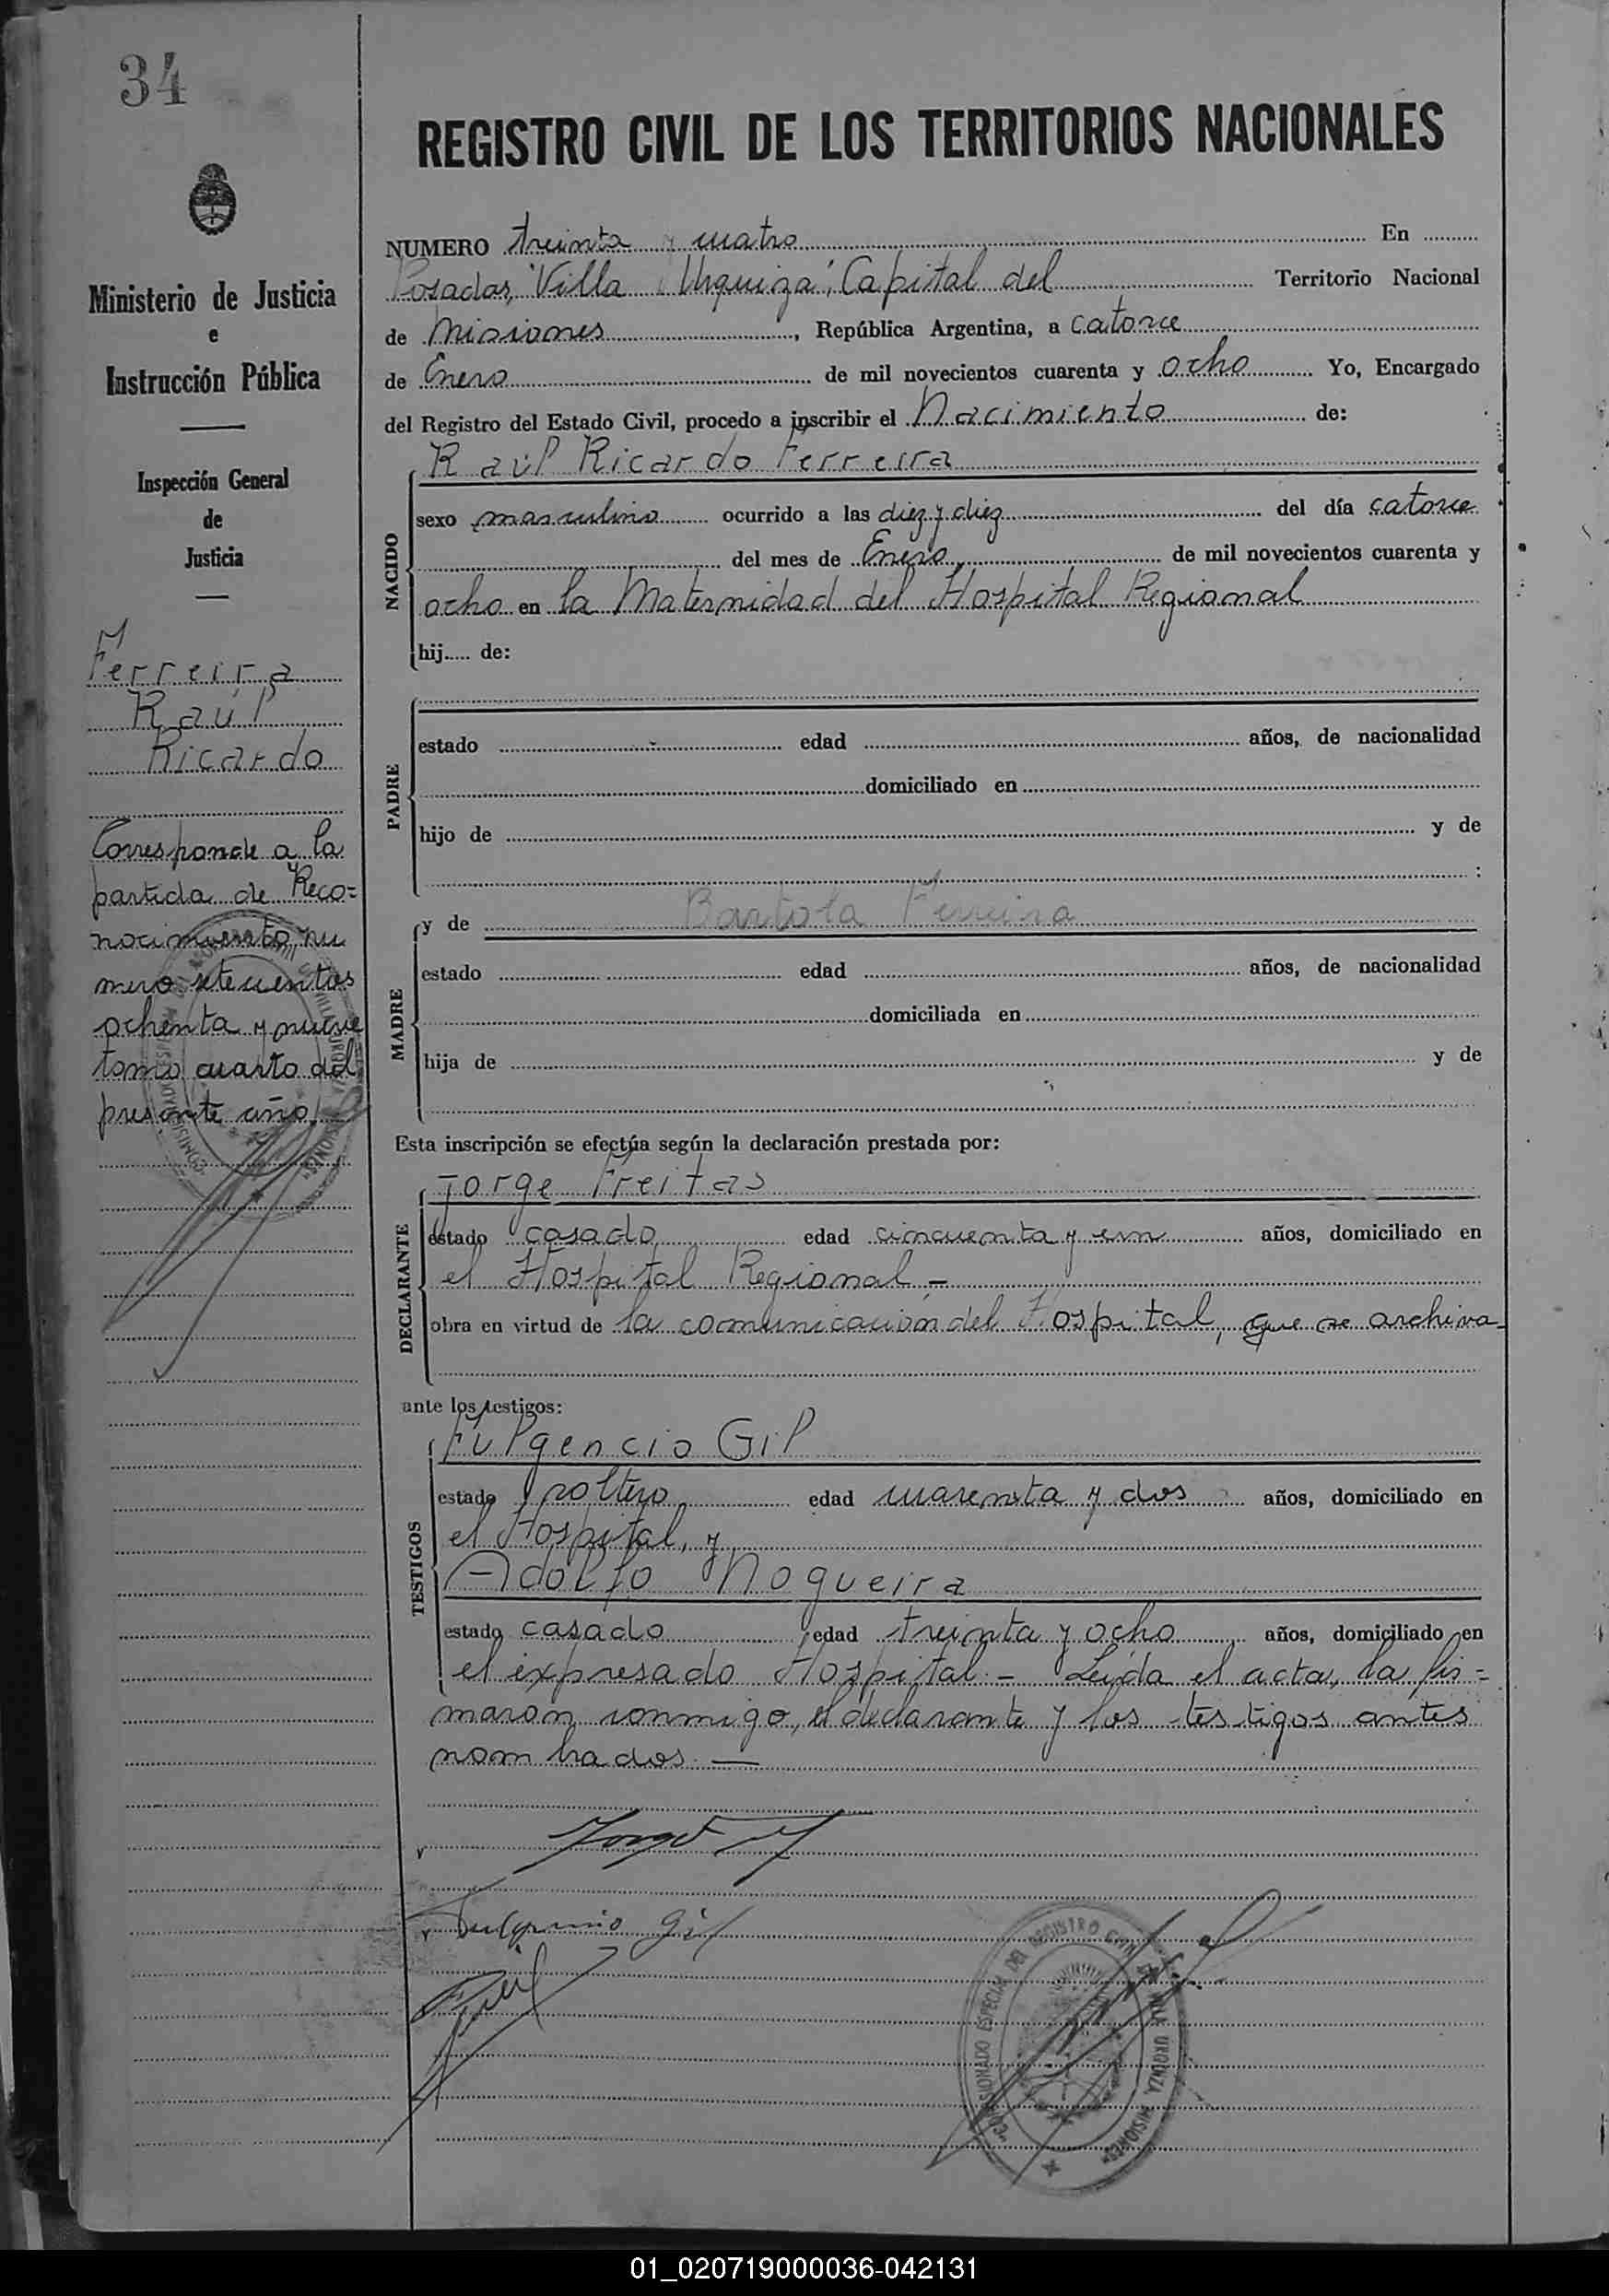 34
REGISTRO CIVIL DE LOS TERRITORIOS NACIONALES
Ministerio de Justicia
e
Instrucción Pública
Inspección General
de
Justicia
Ferreira
Raúl
Ricardo
Corresponde a la
partida de Reco=
nocimiento nu
mero setecientos
ochenta y nueve
tomo cuarto del
presente año.
NUMERO treinta y cuatro En
Posadas, "Villa Urquiza", Capital del Territorio Nacional
de Misiones, República Argentina, a catorce
de Enero de mil novecientos cuarenta y ocho Yo, Encargado
del Registro del Estado Civil, procedo a inscribir el Nacimiento de:
Raúl Ricardo Ferreira
NACIDO
sexo masculino ocurrido a las diez y diez del día catorce
del mes de Enero de mil novecientos cuarenta y
ocho en la Maternidad del Hospital Regional
hij..... de:
PADRE
estado edad años, de nacionalidad
domiciliado en
hijo de y de
:
MADRE
y de Bartola Ferreira
estado edad años, de nacionalidad
domiciliada en
hija de y de
Esta inscripción se efectúa según la declaración prestada por:
DECLARANTE
Jorge Freitas
estado casado edad cincuenta y un años, domiciliado en
el Hospital Regional -
obra en virtud de la comunicación del Hospital, que se archiva
ante los testigos:
TESTIGOS
Fulgencio Gil
estado soltero edad cuarenta y dos años, domiciliado en
el Hospital, y
Adolfo Nogueira
estado casado edad treinta y ocho años, domiciliado en
el expresado Hospital.- Leída el acta, la fir=
maron conmigo, el declarante y los testigos antes
nombrados. —
Jorge
Fulgencio Gil
COMISIONADO ESPECIAL DEL REGISTRO CIVIL VILLA URQUIZA MISIONES
01_020719000036-042131